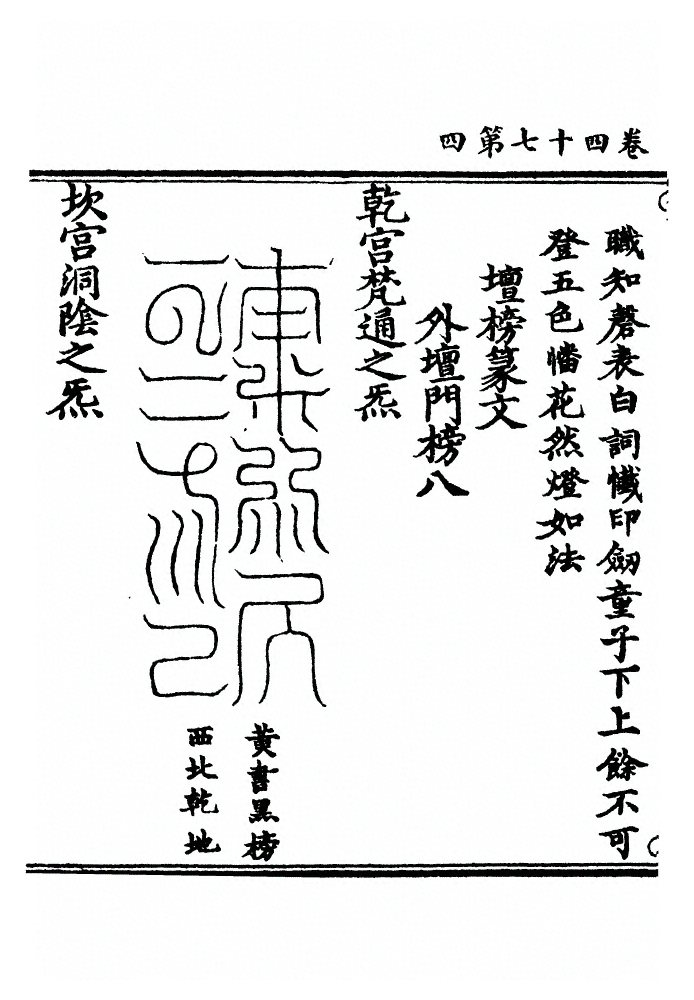 卷四十七第四
職知磬表白詞懺印劒童子下上餘不可
登五色幡花然燈如法
壇榜篆文
外壇門榜八
乾宮梵通之炁
黃書黑榜
西北乾地
坎宮洞陰之炁